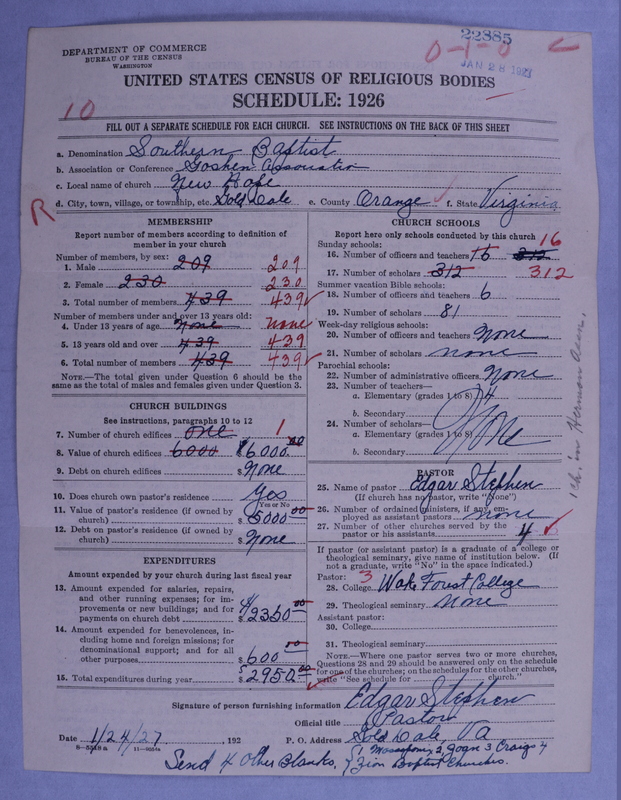 22385
0-1-0
JAN 28 1927
DEPARTMENT OF COMMERCE
BUREAU OF THE CENSUS
WASHINGTON
UNITED STATES CENSUS OF RELIGIOUS BODIES
SCHEDULE: 1926
10
FILL OUT A SEPARATE SCHEDULE FOR EACH CHURCH. SEE INSTRUCTIONS ON THE BACK OF THIS SHEET
a. Denomination Southern Baptist
b. Association or Conference Goshen Association
c. Local name of church New Hope
d. City, town, village, or township, etc. Gold Dale e. County Orange f. State Virginia
R
MEMBERSHIP
Report number of members according to definition of
member in your church
Number of members, by sex:
1. Male 209 209
2. Female 230 230
3. Total number of members 439 439
Number of members under and over 13 years old:
4. Under 13 years of age None None
5. 13 years old and over 439 439
6. Total number of members 439 439
NOTE.—The total given under Question 6 should be the
same as the total of males and females given under Question 3.
CHURCH BUILDINGS
See instructions, paragraphs 10 to 12
7. Number of church edifices one 1
8. Value of church edifices 6000 $6000.00
9. Debt on church edifices $ None
10. Does church own pastor's residence Yes
(Yes or No)
11. Value of pastor's residence (if owned by
church) $5000.00
12. Debt on pastor's residence (if owned by
church) $ None
EXPENDITURES
Amount expended by your church during last fiscal year
13. Amount expended for salaries, repairs,
and other running expenses; for im-
provements or new buildings; and for
payments on church debt $2350.00
14. Amount expended for benevolences, in-
cluding home and foreign missions; for
denominational support; and for all
other purposes $600.00
15. Total expenditures during year $2950.00
CHURCH SCHOOLS
Report here only schools conducted by this church
Sunday schools:
16. Number of officers and teachers 16 312 16
17. Number of scholars 312 312
Summer vacation Bible schools:
18. Number of officers and teachers 6
19. Number of scholars 81
Week-day religious schools:
20. Number of officers and teachers None
21. Number of scholars none
Parochial schools:
22. Number of administrative officers None
23. Number of teachers—
a. Elementary (grades 1 to 8)
b. Secondary
24. Number of scholars—
a. Elementary (grades 1 to 8) None
b. Secondary
PASTOR
25. Name of pastor Edgar Stephen
(If church has no pastor, write "None")
26. Number of ordained ministers, if any, em-
ployed as assistant pastors none
27. Number of other churches served by the
pastor or his assistants 4
If pastor (or assistant pastor) is a graduate of a college or
theological seminary, give name of institution below. (If
not a graduate, write "No" in the space indicated.)
Pastor: 3
28. College Wake Forest College
29. Theological seminary None
Assistant pastor:
30. College
31. Theological seminary
NOTE.—Where one pastor serves two or more churches,
Questions 28 and 29 should be answered only on the schedule
for one of the churches; on the schedules for the other churches,
write "See schedule for church."
Signature of person furnishing information Edgar Stephen
Official title Pastor
Date 1/24/27, 192 P. O. Address Gold Dale, Va
Send 4 Other Blanks.